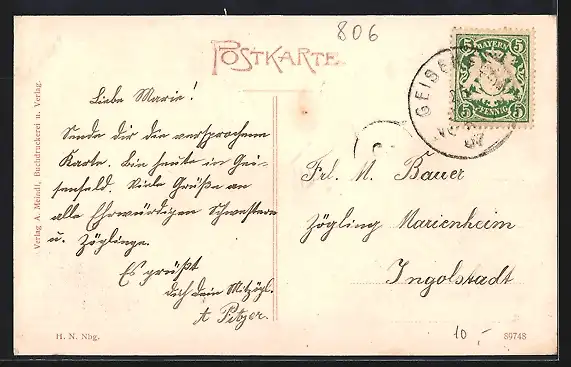 806
POSTKARTE
BAYERN
5 5
PFENNIG
5 5
GEISENF
07
Verlag A. Meindl, Buchdruckerei u. Verlag.
Liebe Marie!
Sende dir die versprochene
Karte. Bin heute in Gei-
senfeld. Viele Grüße an
alle Ehrwürdigen Schwestern
u. Zöglinge.
Es grüßt
dich dein Mitzögl.
A Pitzer.
Frl. M. Bauer
Zögling Marienheim
Ingolstadt
H. N. Nbg.
10,-
89748